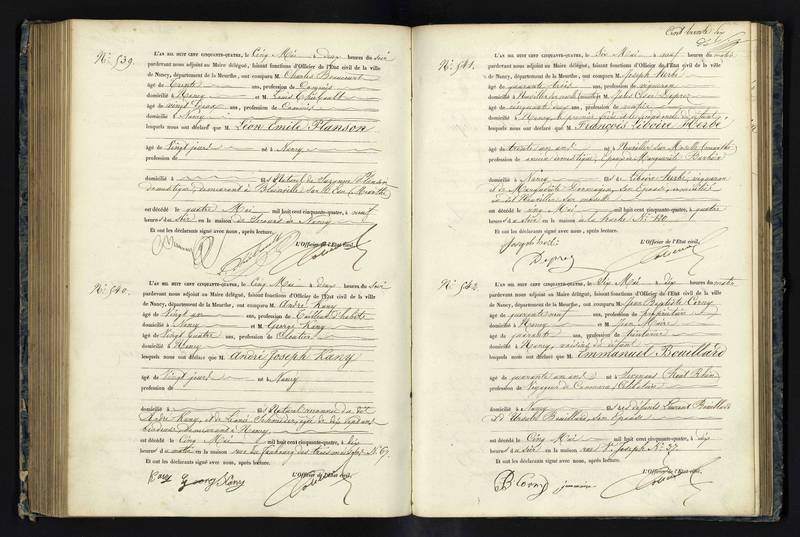 N.º 539.
L'AN MIL HUIT CENT CINQUANTE-QUATRE, le Cinq Mai à deux heures du Soir
pardevant nous adjoint au Maire délégué, faisant fonctions d'Officier de l'Etat civil de la ville
de Nancy, département de la Meurthe, ont comparu M. Charles
âgé de Trente ans, profession de Commis
domicilié à Nancy et M. Louis Thiébault
âgé de vingt ans, profession de Commis
domicilié à Nancy
lesquels nous ont déclaré que Léon Emile Planson
âgé de Vingt jours né à Nancy
profession de
domicilié à fils Naturel de Suzanne Planson
domestique, demeurant à Blainville sur l'Eau (Meurthe)
est décédé le quatre Mai mil huit cent cinquante-quatre, à neuf
heures du Soir en la maison de Secours de Nancy
Et ont les déclarants signé avec nous, après lecture.
L'Officier de l'Etat civil,
N.º 540.
L'AN MIL HUIT CENT CINQUANTE-QUATRE, le Cinq Mai à deux heures du Soir
pardevant nous adjoint au Maire délégué, faisant fonctions d'Officier de l'Etat civil de la ville
de Nancy, département de la Meurthe, ont comparu M. André Kany
âgé de Vingt ans, profession de Tailleur d'habits
domicilié à Nancy et M. George Kany
âgé de Vingt quatre ans, profession de
domicilié à Nancy
lesquels nous ont déclaré que André Joseph Kany
âgé de Vingt jours né à Nancy
profession de
domicilié à fils Naturel reconnu du dit
André Kany, et de Schneider, âgée de dix sept ans
demeurant à Nancy
est décédé le Cinq Mai mil huit cent cinquante-quatre, à dix
heures du matin en la maison rue du faubourg des trois maisons N.º 67.
Et ont les déclarants signé avec nous, après lecture.
L'Officier de l'Etat civil,
Kany George Kany
Cent trente
N.º 541.
L'AN MIL HUIT CENT CINQUANTE-QUATRE, le Six Mai à neuf heures du matin
pardevant nous adjoint au Maire délégué, faisant fonctions d'Officier de l'Etat civil de la ville
de Nancy, département de la Meurthe, ont comparu M. Joseph Herbé
âgé de quarante trois ans, profession de vigneron
domicilié à Neuviller sur Moselle et M. Jules César Duprez
âgé de cinquante ans, profession de
domicilié à Nancy, le premier frère et le second de la défunte
lesquels nous ont déclaré que François Liboire Herbé
âgé de trente un ans né à Neuviller sur Moselle (Meurthe)
profession de ancien domestique, Epoux de Marguerite
domicilié à Nancy fils de Liboire Herbé, vigneron
et de Marguerite son Epouse, domiciliés
au dit Neuviller sur Moselle
est décédé le cinq Mai mil huit cent cinquante-quatre, à quatre
heures du soir en la maison N.º 120
Et ont les déclarants signé avec nous, après lecture.
L'Officier de l'Etat civil,
joseph herbé
Duprez
N.º 542.
L'AN MIL HUIT CENT CINQUANTE-QUATRE, le Six Mai à dix heures du matin
pardevant nous adjoint au Maire délégué, faisant fonctions d'Officier de l'Etat civil de la ville
de Nancy, département de la Meurthe, ont comparu M. Jean Baptiste Corny
âgé de quarante neuf ans, profession de propriétaire
domicilié à Nancy et M. Jean
âgé de quarante ans, profession de
domicilié à Nancy, voisins du défunt
lesquels nous ont déclaré que Emmanuel Bouillard
âgé de quarante un ans né à (Haut Rhin)
profession de Voyageur de Commerce, Célibataire
domicilié à Nancy fils des défunts Laurent Bouillard
et d'Ursule Bouillard, son Epouse
est décédé le Cinq Mai mil huit cent cinquante-quatre, à dix
heures du soir en la maison rue St. Joseph N.º 37.
Et ont les déclarants signé avec nous, après lecture.
L'Officier de l'Etat civil,
B Corny